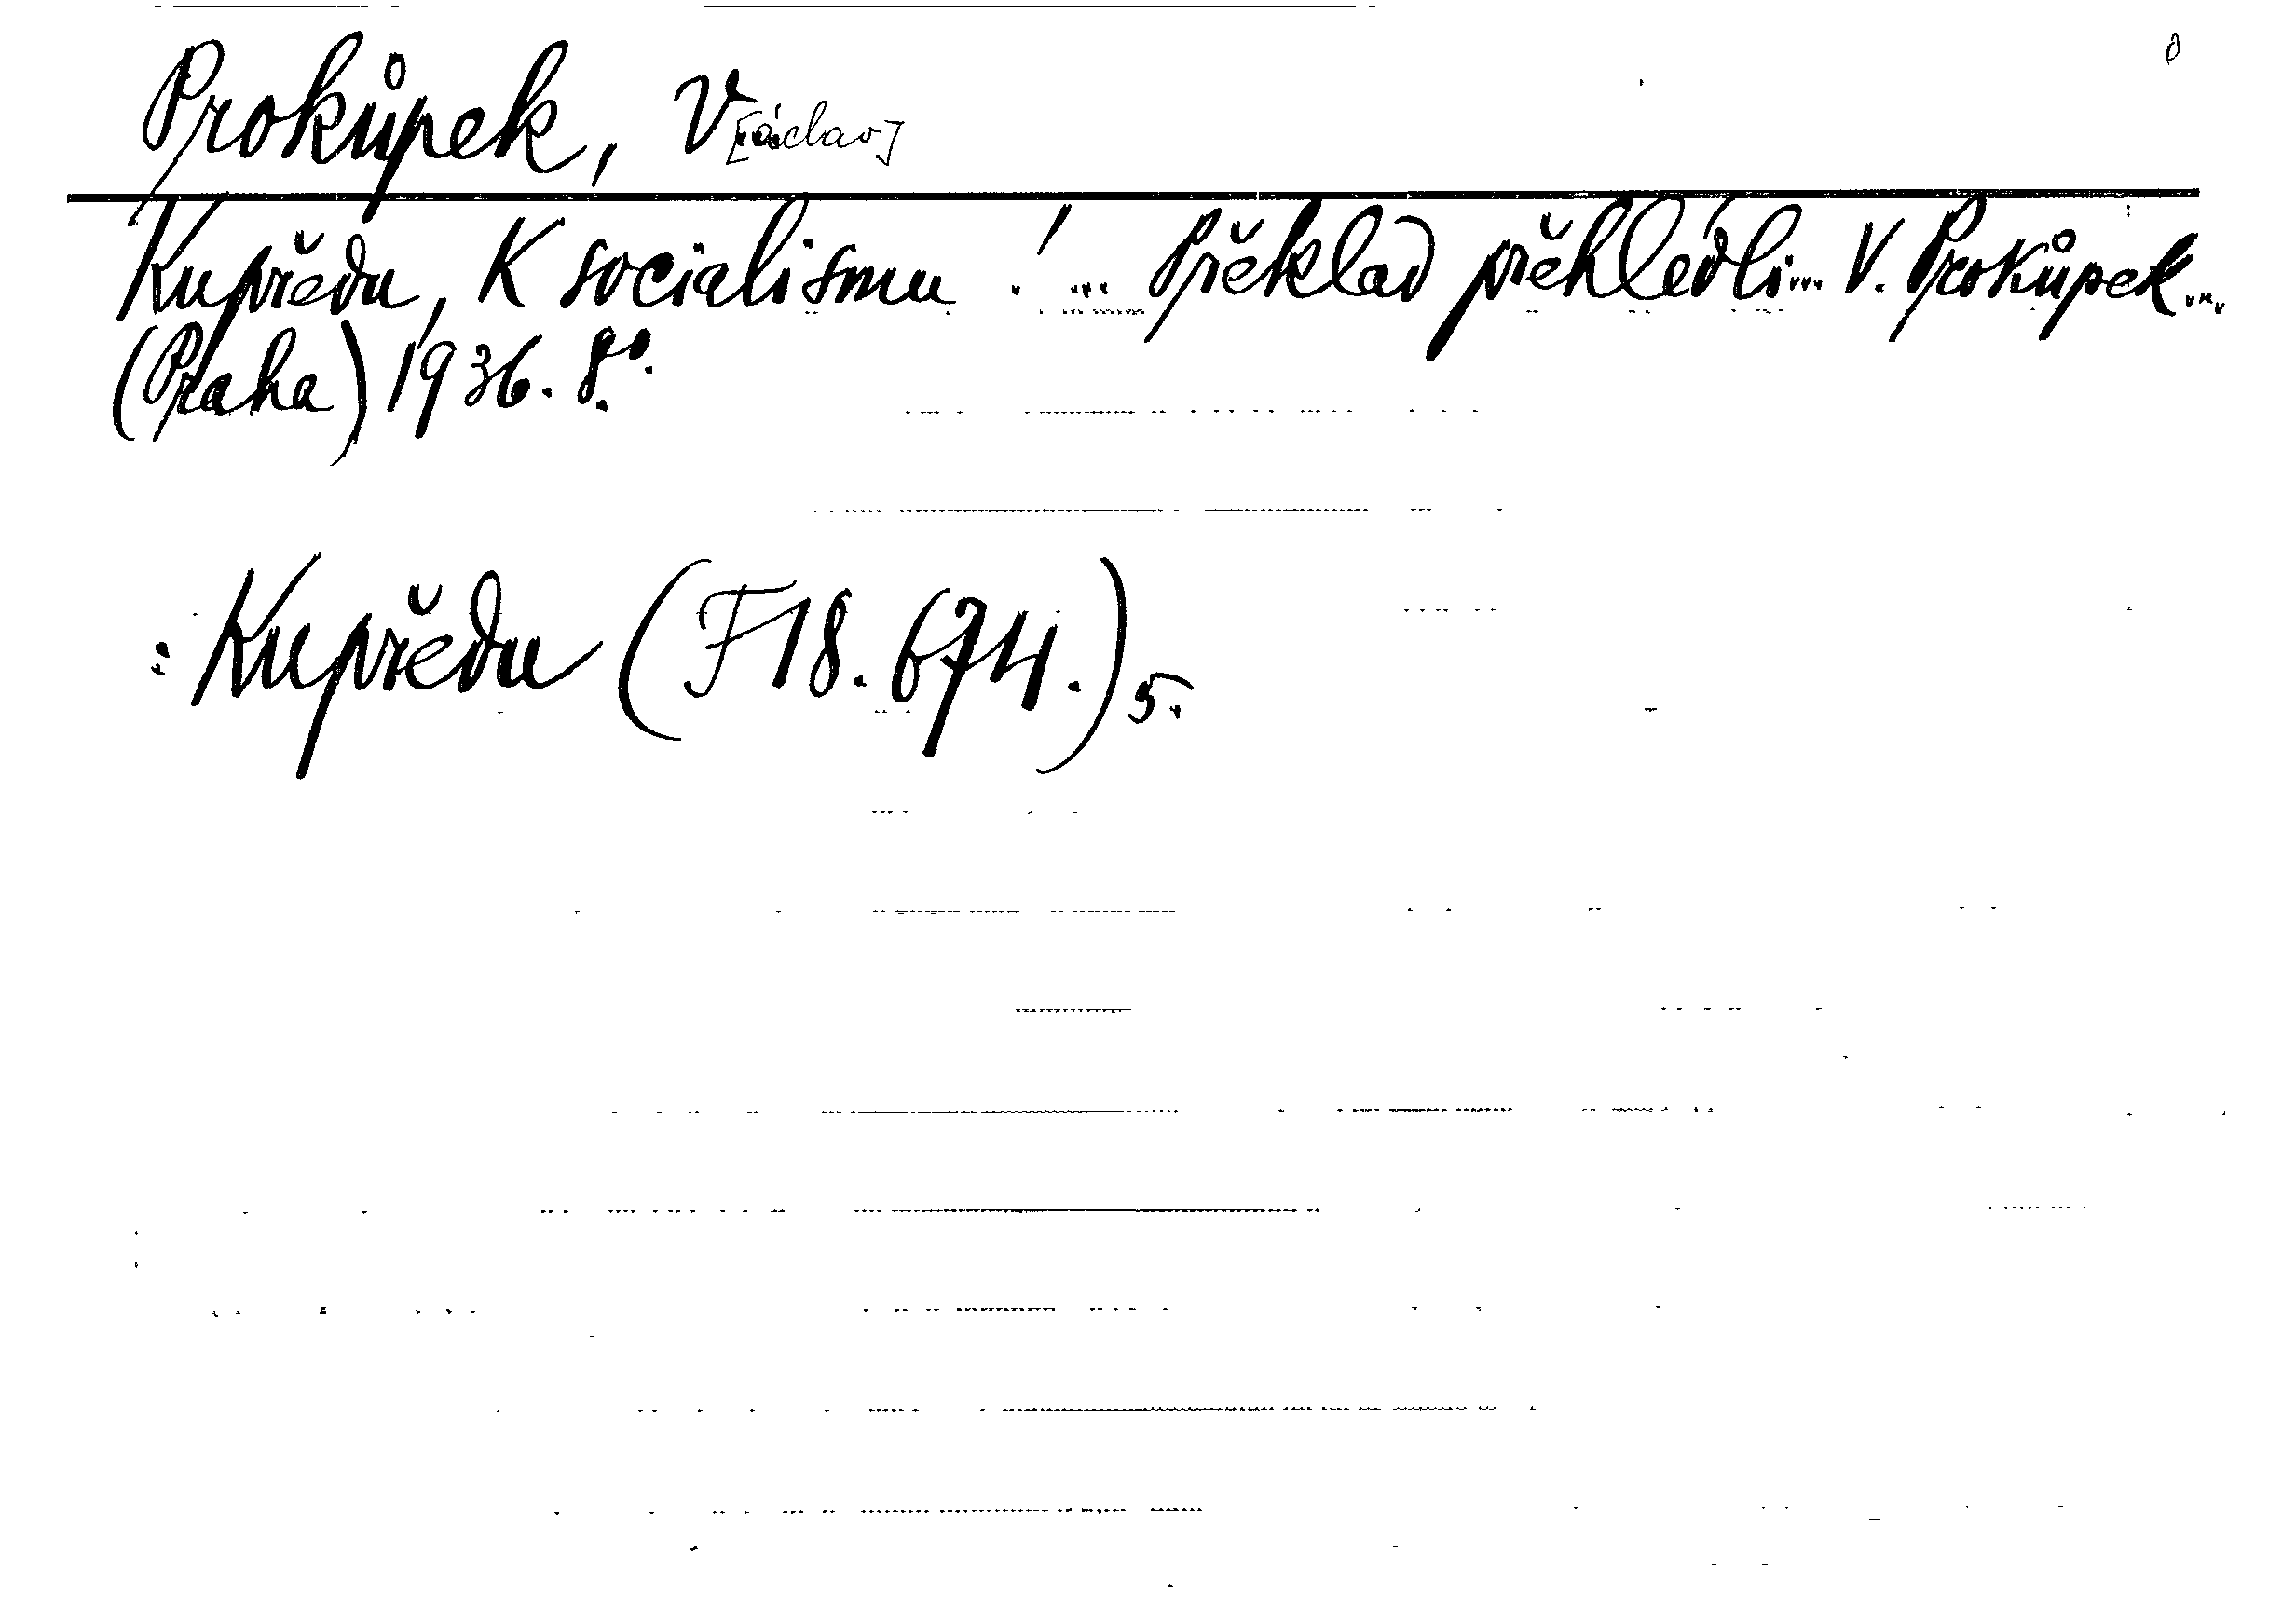 Prokůpek, V[áclav]
Kupředu, K socialismu! ... Překlad přehlédli... V. Prokůpek...
(Praha) 1936. 8°.
: Kupředu (F18.674.)5.